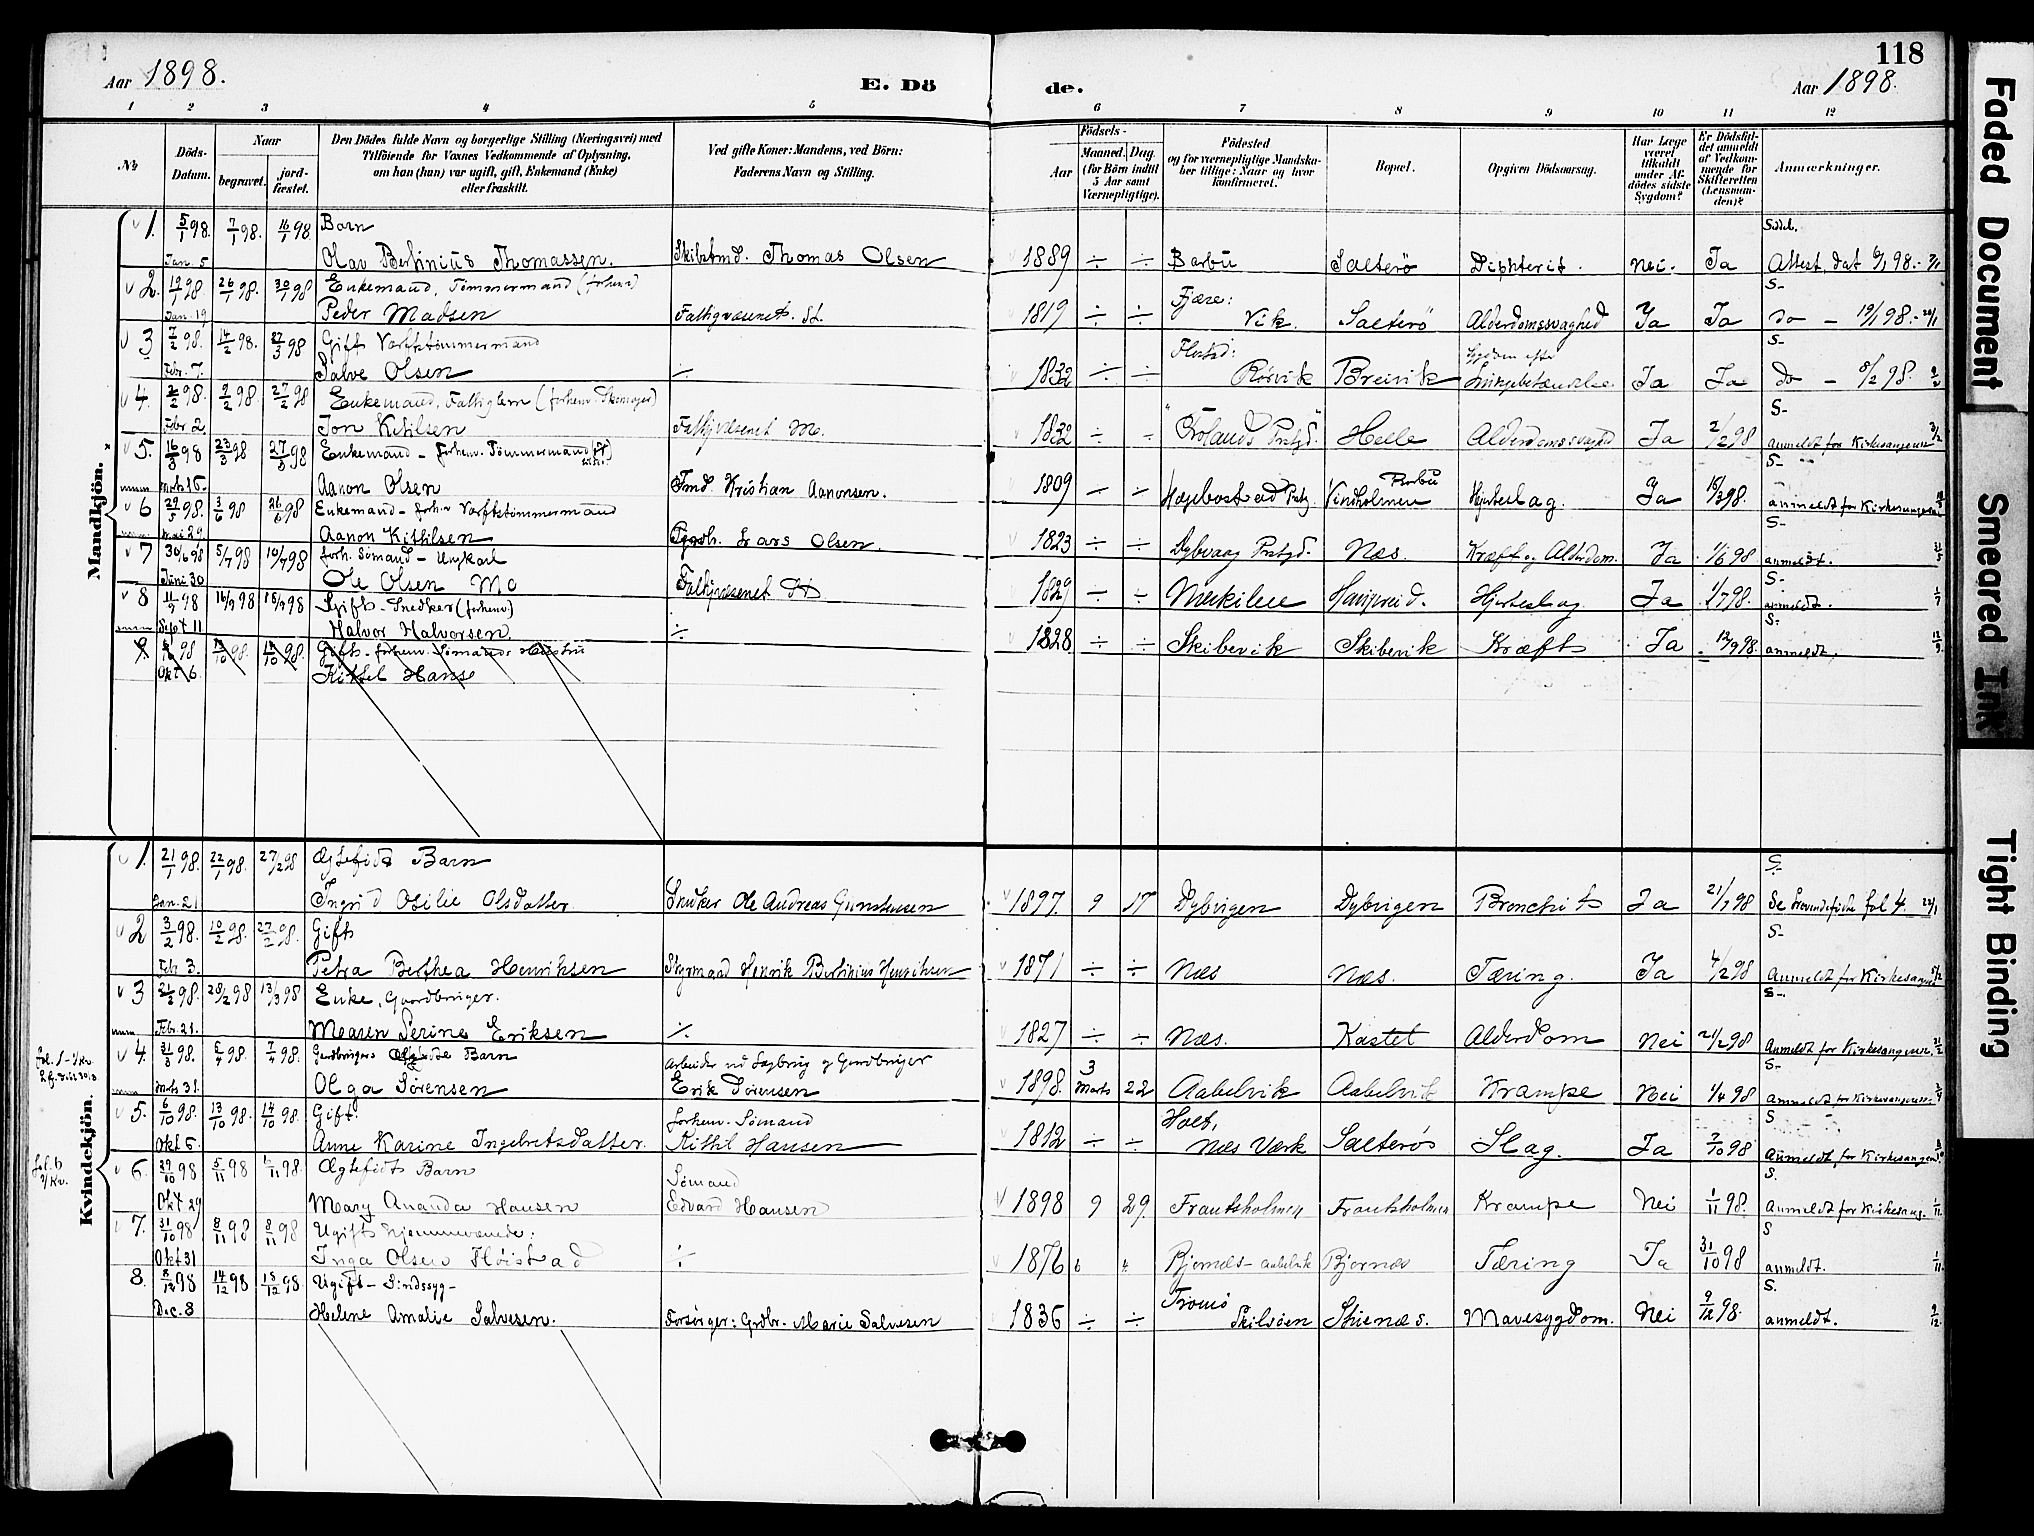 118
Aar 1898.
E. Dö
de.
Aar 1898.
1 2 3 4 5 6 7 8 9 10 11 12
№
Döds-Datum.
Naar
begravet.
jord-fæstet.
Den Dödes fulde Navn og borgerlige Stilling (Næringsvei) med
Tilföiende for Voxnes Vedkommende af Oplysning,
om han (hun) var ugift, gift, Enkemand (Enke)
eller fraskilt.
Ved gifte Koner: Mandens, ved Börn:
Faderens Navn og Stilling.
Födsels-
Aar
Maaned. Dag.
(for Börn indtil
5 Aar samt
Værnepligtige).
Födested
og for værnepligtige Mandska-
ber tillige: Naar og hvor
konfirmeret.
Bopæl.
Opgiven Dödsaarsag.
Har Læge
været
tilkaldt
under Af-
dödes sidste
Sygdom?
Er Dödsfal-
det anmeldt
af Vedkom-
mende for
Skifteretten
(Lensman-
den)?
Anmærkninger.
Mandkjön.
1. 5/1 98. 7/1 98. 16/1 98. Barn
Jan. 5 Olav Bertinius Thomassen. Skibstmd. Thomas Olsen 1889 ÷ ÷ Barbu Salterö Diphterit. Nei. Ja Attest, dat 6/1 98. - 7/1
2. 19/1 98 26/1 98. 30/1 98 Enkemand, Tømmermand (forhenv)
Jan. 19 Peder Madsen Fattigvæsenet. St. 1819 ÷ ÷ Fjære: Vik. Salterö Alderdomssvaghed Ja Ja do - 19/1 98. - 20/1
3 7/2 98. 14/2 98. 27/3 98 Gift Værftstømmermand
Febr. 7. Salve Olsen ∕. 1832 ÷ ÷ Flosta: Røsvik Breivik Sygdom efter Lungebetændelse Ja Ja do - 8/2 98. 9/2
4. 2/2 98. 9/2 98. 27/2 98 Enkemand, Fattiglem (forhenv. Skomager)
Febr 2 Jon Kittilsen Fattigvæsenet M. 1832 ÷ ÷ "Frolands Prstgd." Helle Alderdomssvaghed Ja 2/2 98 anmeldt for Kirkesangeren 3/2
5. 16/3 98 23/3 98 27/3 98 Enkemand - forhenv. Tømmermand
Mrts 16. Aanon Olsen Tmd. Kristian Aanonsen. 1809 ÷ ÷ Hægebostad Prstg. Vindholmen Barbu Hjerteslag. Ja 18/3 98. anmeldt for Kirkesangeren 18/3
6 29/5 98. 3/6 98 26/6 98 Enkemand - forhv Værftstømmermand
Mai 29 Aanon Kittilsen Lars Olsen. 1823 ÷ ÷ Dybvaag Prstgd. Næs. Kræft og Alderdom. Ja 1/6 98 anmeldt. 31/5
7 30/6 98 5/7 98 10/7 98 forh. Sømand - Ungkarl
Juni 30 Ole Olsen Mo Fattigvæsenet 1829 ÷ ÷ Hjerteslag Ja 1/7 98. anmeldt. 1/7
8 11/9 98 16/9 98 18/9 98 Gift - Snedker (forhenv)
Sept 11 Halvor Halvorsen. ∕. 1828 ÷ ÷ Skibevik Skibevik Kræft Ja 12/9 98. anmeldt. 12/9
9. 6/10 98 13/10 98. 14/10 98. Gift - forhenv. Sømands Hustru
Okt 6 Kittel Hanse
Kvindekjön.
1. 21/1 98. 22/1 98. 27/2 98 Ægtefödt Barn
Jan. 21 Ingrid Otilie Olsdatter Snedker Ole Andreas Gunstensen 1897. 9 17 Dybvigen Dybvigen Bronchit Ja 21/1 98 Se fol 4. 22/1
2 3/2 98. 10/2 98. 27/2 98. Gift
Febr 3. Petra Berthea Henriksen Styrmand Henrik Bertinius Henriksen 1871 ÷ ÷ Næs Næs. Tæring. Ja 4/2 98 Anmeldt for Kirkesangeren 5/2
3 21/2 98. 28/2 98 13/3 98 Enke, Gaardbruger.
Febr. 21. Maren Serine Eriksen ∕. 1827 ÷ ÷ Næs. Kastet Alderdom Nei 21/2 98 Anmeldt for Kirkesangeren 21/2
4. 31/3 98. 5/4 98. 7/4 98. Gardbrugers Barn Arbeider ved Sagbrug og Gardbruger
Mrts 31. Olga Sörensen Erik Sörensen 1898. 3 Marts 22 Aabelvik Aabelvik Krampe Nei 1/4 98 Anmeldt for Kirkesangeren
5. 6/10 98. 13/10 98. 14/10 98. Gift. forhenv. Sømand
Okt 6. Anne Karine Ingebretsdatter. Kittil Hansen 1812 ÷ ÷ Holt, Næs Værk Salterös Slag. Ja 7/10 98 Anmeldt for Kirkesangeren
6. 29/10 98 5/11 98 6/11 98. Ægtefödt Barn Sömand
Okt 29 Mary Ananda Hansen Edvard Hansen 1898 9 29. Frantsholmen Frantsholmen Krampe Nei 1/11 98. Anmeldt for Kirkesang. 1/11
7. 31/10 98 8/11 98 8/11 98 Ugift hjemmeværende.
Okt 31 Inga Olsen Flöistad ∕. 1876 6 4. Bjornæs - Aabelvik Bjornæs Tæring Ja 31/10 98 anmeldt. 1/11
8. 8/12 98 14/12 98 18/12 98 Ugift - Sindssyg -
Dec. 8 Helene Amalie Salvesen. Forsörger: Grdbr. Marie Salvesen 1836 ÷ ÷ Tromö Skilsöen Skienæs. Mavesygdom. Nei 9/12 98. anmeldt. 9/12
Faded Document
Smeared Ink
Tight Binding